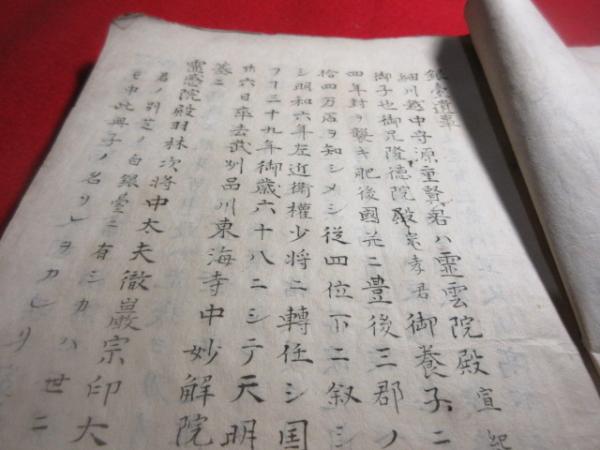 銀臺遺事
細川越中守源重賢君ハ霊雲院殿宣紀
御子也御兄隆徳院殿宗孝君御養子ニ
四年封ヲ襲キ肥後國并ニ豊後三郡ノ
拾四万石ヲ知シメシ従四位下ニ叙シ
シ明和六年左近衛權少将ニ轉任シ国
フ三十九年御歳六十八ニシテ天明
廿六日卒去武州品川東海寺中妙解院
霊感院殿羽林次将中太夫徹巖宗印大
君ノ別荘ノ白銀臺ニ有シカハ世ニ
モ申此子ノ名